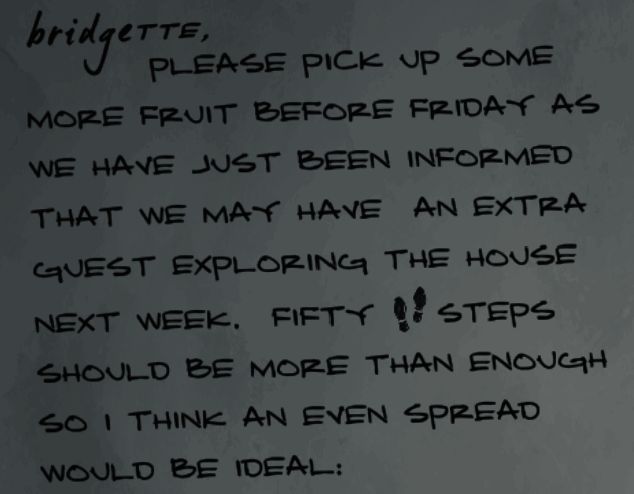 bridgeTTE,
PLEASE PICK UP SOME
MORE FRUIT BEFORE FRIDAY AS
WE HAVE JUST BEEN INFORMED
THAT WE MAY HAVE AN EXTRA
GUEST EXPLORING THE HOUSE
NEXT WEEK. FIFTY STEPS
SHOULD BE MORE THAN ENOUGH
SO I THINK AN EVEN SPREAD
WOULD BE IDEAL: